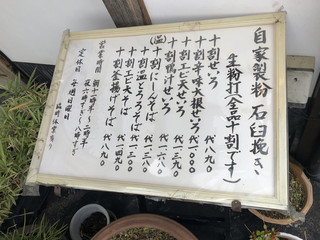 自家製粉 石臼挽き
生粉打(全品十割です)
十割せいろ 代八九〇
十割辛味大根せいろ 代一〇〇〇
十割エビ天せいろ 代一三九〇
十割鴨汁せいろ 代一三九〇
(温)
十割にしんそば 代一三八〇
十割温とろろそば 代一一六〇
十割エビ天そば 代一四九〇
十割釜揚げそば 代八九〇
営業時間 朝十一時半〜二時半
夜六時〜八時すぎ
定休日 毎週日曜日
臨時休業有り